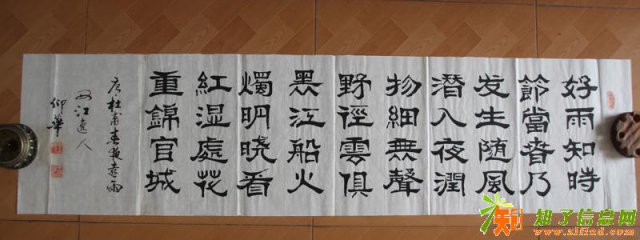 好雨知時
節當春乃
发生随風
潛入夜潤
物細無聲
野徑雲俱
黑江船火
燭明曉看
紅湿處花
重錦官城
唐杜甫春夜喜雨
西江逸人
仰華
知了信息网